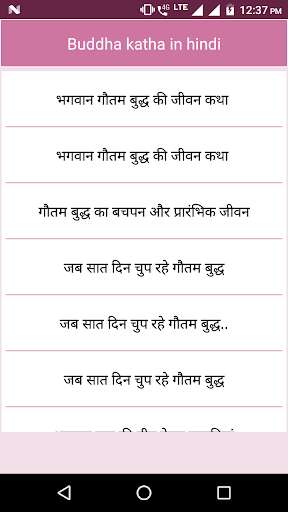 N 4G LTE 12:37 PM
Buddha katha in hindi
भगवान गौतम बुद्ध की जीवन कथा
भगवान गौतम बुद्ध की जीवन कथा
गौतम बुद्ध का बचपन और प्रारंभिक जीवन
जब सात दिन चुप रहे गौतम बुद्ध
जब सात दिन चुप रहे गौतम बुद्ध..
जब सात दिन चुप रहे गौतम बुद्ध